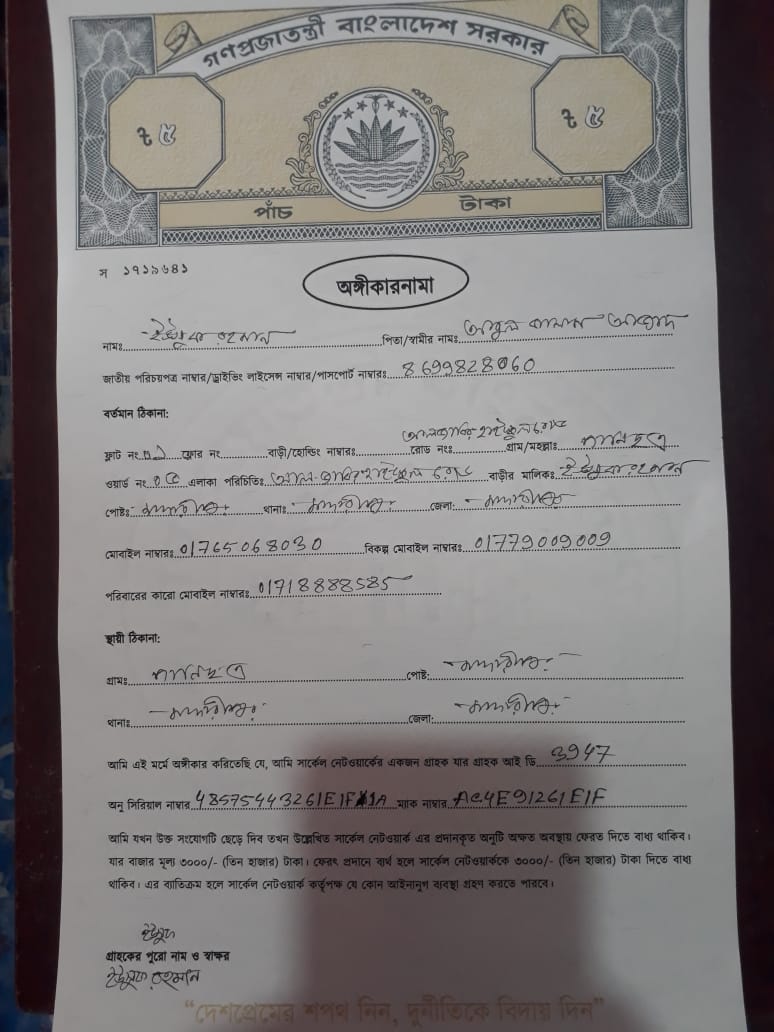 গণপ্রজাতন্ত্রী বাংলাদেশ সরকার
৳ ৫ ৳ ৫
পাঁচ টাকা
স ১৭১৯৬৪১
অঙ্গীকারনামা
নামঃ ইউসুফ রহমান পিতা/স্বামীর নামঃ আবুল কালাম আজাদ
জাতীয় পরিচয়পত্র নাম্বার/ড্রাইভিং লাইসেন্স নাম্বার/পাসপোর্ট নাম্বারঃ 8699828060
বর্তমান ঠিকানা:
ফ্লাট নং ফ্লোর নং বাড়ী/হোল্ডিং নাম্বারঃ রোড নংঃ গ্রাম/মহল্লাঃ পানিছত্র
ওয়ার্ড নং ০৫ এলাকা পরিচিতিঃ বাড়ীর মালিকঃ ইউসুফ রহমান
পোষ্টঃ মাদারীপুর থানাঃ মাদারীপুর জেলা: মাদারীপুর
মোবাইল নাম্বারঃ 01765068030 বিকল্প মোবাইল নাম্বারঃ 01779009009
পরিবারের কারো মোবাইল নাম্বারঃ 01718888585
স্থায়ী ঠিকানা:
গ্রামঃ পানিছত্র পোষ্ট: মাদারীপুর
থানাঃ মাদারীপুর জেলা: মাদারীপুর
আমি এই মর্মে অঙ্গীকার করিতেছি যে, আমি সার্কেল নেটওয়ার্কের একজন গ্রাহক যার গ্রাহক আই ডি 3947
অনু সিরিয়াল নাম্বার 48575443261E1F1A ম্যাক নাম্বার AC4E91261E1F
আমি যখন উক্ত সংযোগটি ছেড়ে দিব তখন উল্লেখিত সার্কেল নেটওয়ার্ক এর প্রদানকৃত অনুটি অক্ষত অবস্থায় ফেরত দিতে বাধ্য থাকিব।
যার বাজার মূল্য ৩০০০/- (তিন হাজার) টাকা। ফেরৎ প্রদানে ব্যর্থ হলে সার্কেল নেটওয়ার্ককে ৩০০০/- (তিন হাজার) টাকা দিতে বাধ্য
থাকিব। এর ব্যতিক্রম হলে সার্কেল নেটওয়ার্ক কর্তৃপক্ষ যে কোন আইনানুগ ব্যবস্থা গ্রহণ করতে পারবে।
ইউসুফ
গ্রাহকের পুরো নাম ও স্বাক্ষর
ইউসুফ রহমান
“দেশপ্রেমের শপথ নিন, দুর্নীতিকে বিদায় দিন”